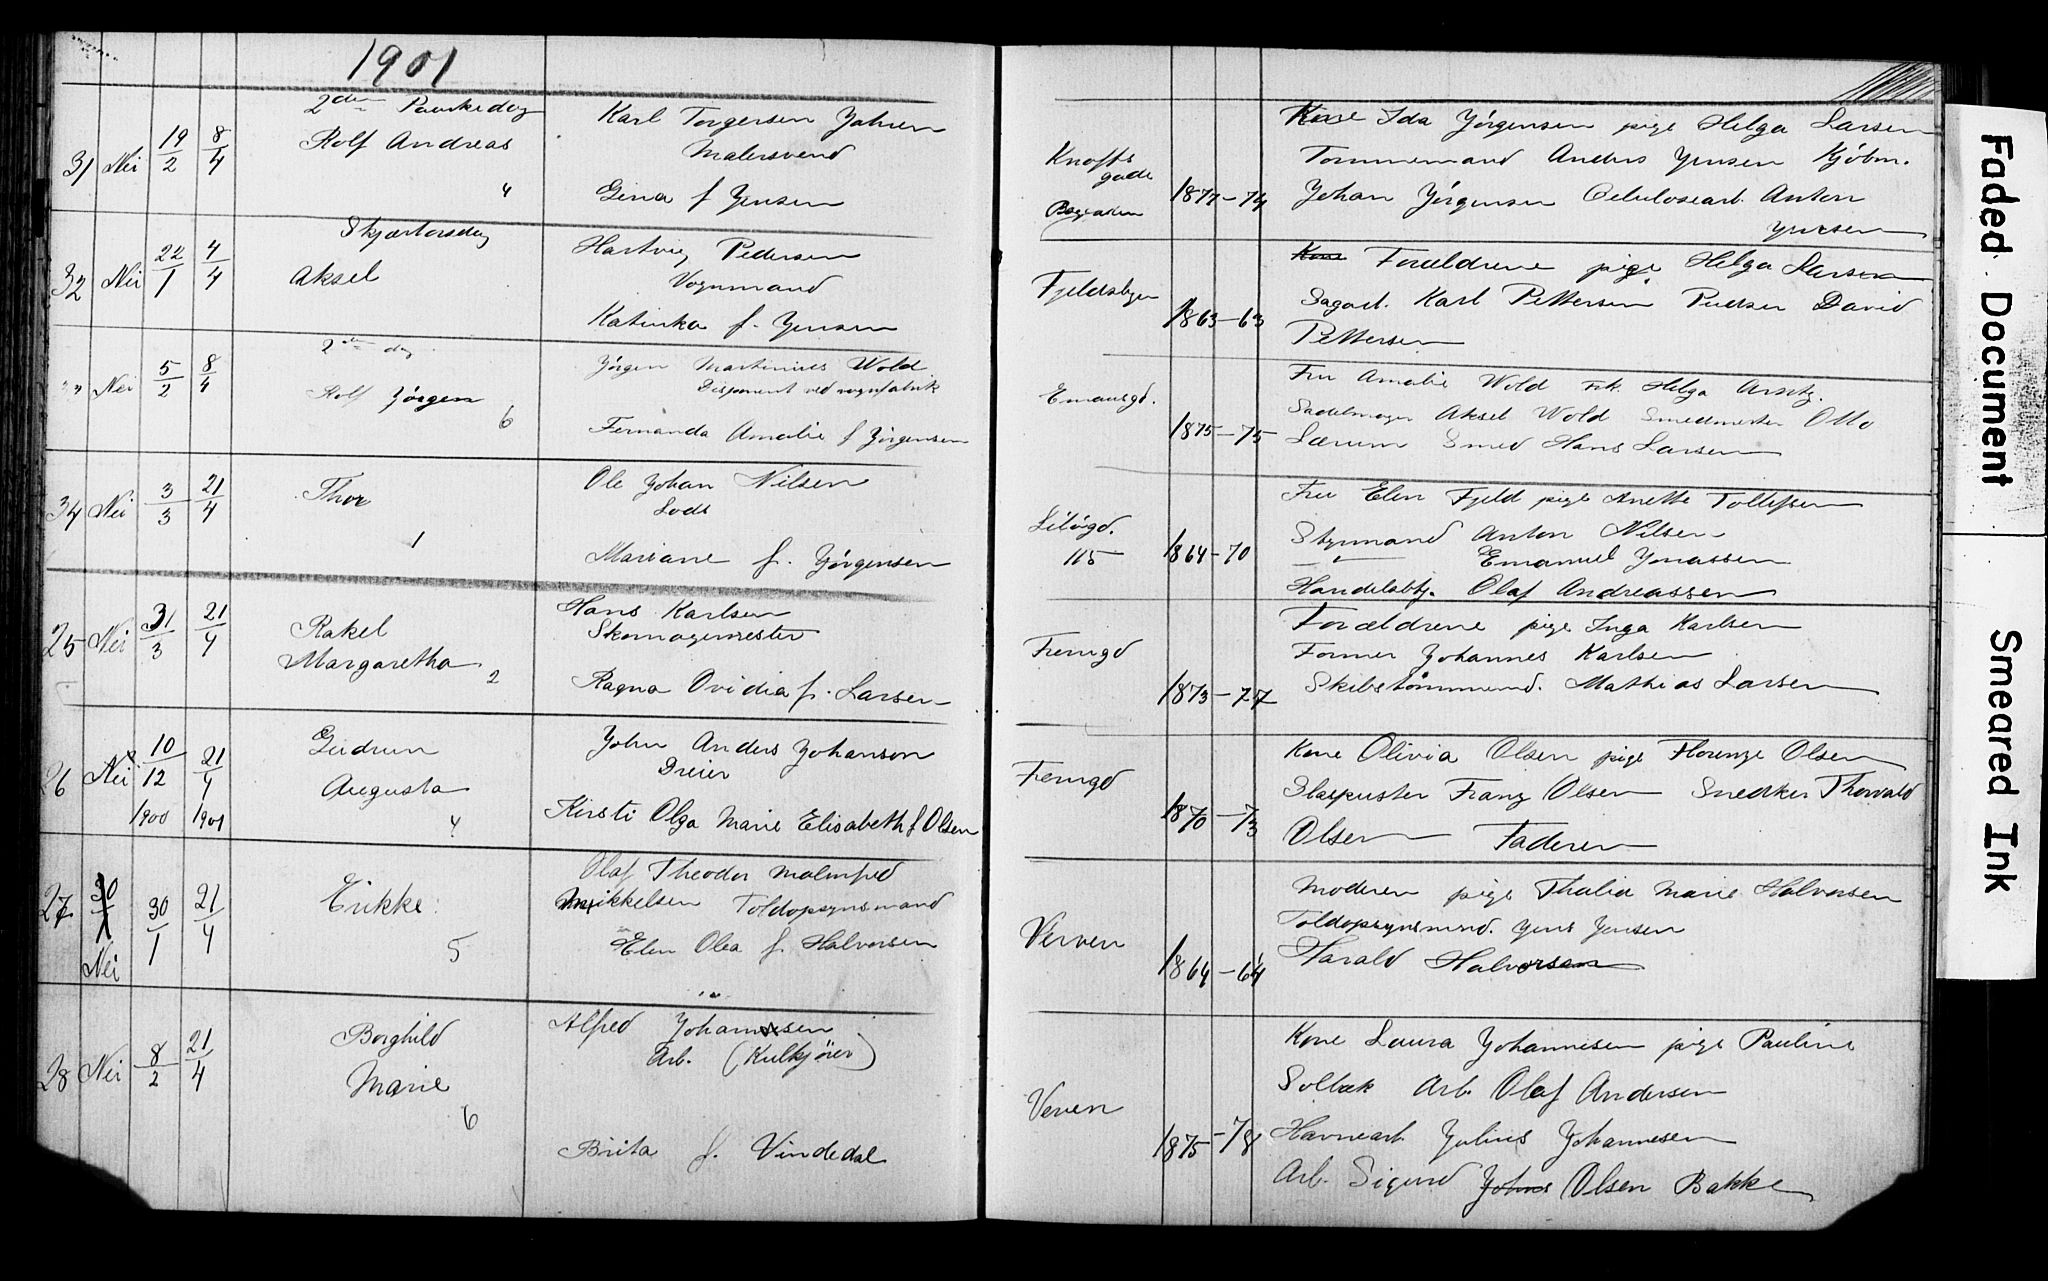 1901
31 Nei 19/2 8/4
2den Paaskedag
Rolf Andreas
4
Karl Torgersen Johnsen
Malersvend
Gina f Jensen
32 Nei 22/1 4/4
Skjærtorsdag
Aksel
Hartvig Pedersen
Vognmand
Katinka f. Jensen
33 Nei 5/2 8/4
2den dag
Rolf Jörgen
6
Jörgen Martinius Wold
Disponent ved vognfabrik
Fernanda Amalie f Jörgensen
34 Nei 3/3 21/4
Thor
1
Ole Johan Nilsen
Lods
Mariane f. Jörgensen
25 Nei 31/3 21/4
Rakel
Margaretha
2
Hans Karlsen
Skomagermester
Ragna Ovidia f. Larsen
26 Nei 10/12 1900 21/4 1901
Gudrun
Augusta
4
John Anders Johanson
Dreier
Kirsti Olga Marie Elisabeth f Olsen
27 30/1 Nei 30/1 21/4
Erikke
5
Olaf Theodor Malmfred
Mikkelsen Toldopsynsmand
Elen Olea f. Halvorsen
28 Nei 8/2 21/4
Borghild
Marie
6
Alfred Johannesen
Arb. (Kulkjörer)
Brita f. Vindedal
Knoffs
gade
1877-74
Kone Ida Jörgensen pige Helga Larsen
Tømmermand Anders Jensen Kjöbm.
Johan Jörgensen Celulosearb. Anton
Jensen
Fjeldsbyen
1863-63
Kone Forældrene pige Helga Larsen
Sagarb. Karl Pettersen Pudser David
Pettersen
Emausgd.
1875-75
Fru Amalie Wold frk. Helga Arntz.
Sadelmager Aksel Wold Smedmester Otto
Lærum Smed Hans Larsen
Liløgd.
115
1864-70
Fru Elen Fjeld pige Anette Tollefsen
Styrmand Anton Nilsen
— " — Emanuel Jonassen
Handelsbtj. Olaf Andreassen
Femgd
1873-77
Forældrene pige Inga Karlsen
Former Johannes Karlsen
Skibstömmermd. Mathias Larsen
Femgd
1870-73
Kone Olivia Olsen pige Florenze Olsen
Glaspuster Franz Olsen Snedker Thorvald
Olsen Faderen
Verven
1864-64
Moderen pige Thalia Marie Halvorsen
Toldopsynsmnd. Jens Jensen
Harald Halvorsen
Verven
1875-78
Kone Laura Johannesen pige Pauline
Solbak Arb. Olaf Andersen
Havnearb. Julius Johannesen
Arb. Sigurd Johns Olsen Bakke
Faded Document
Smeared Ink